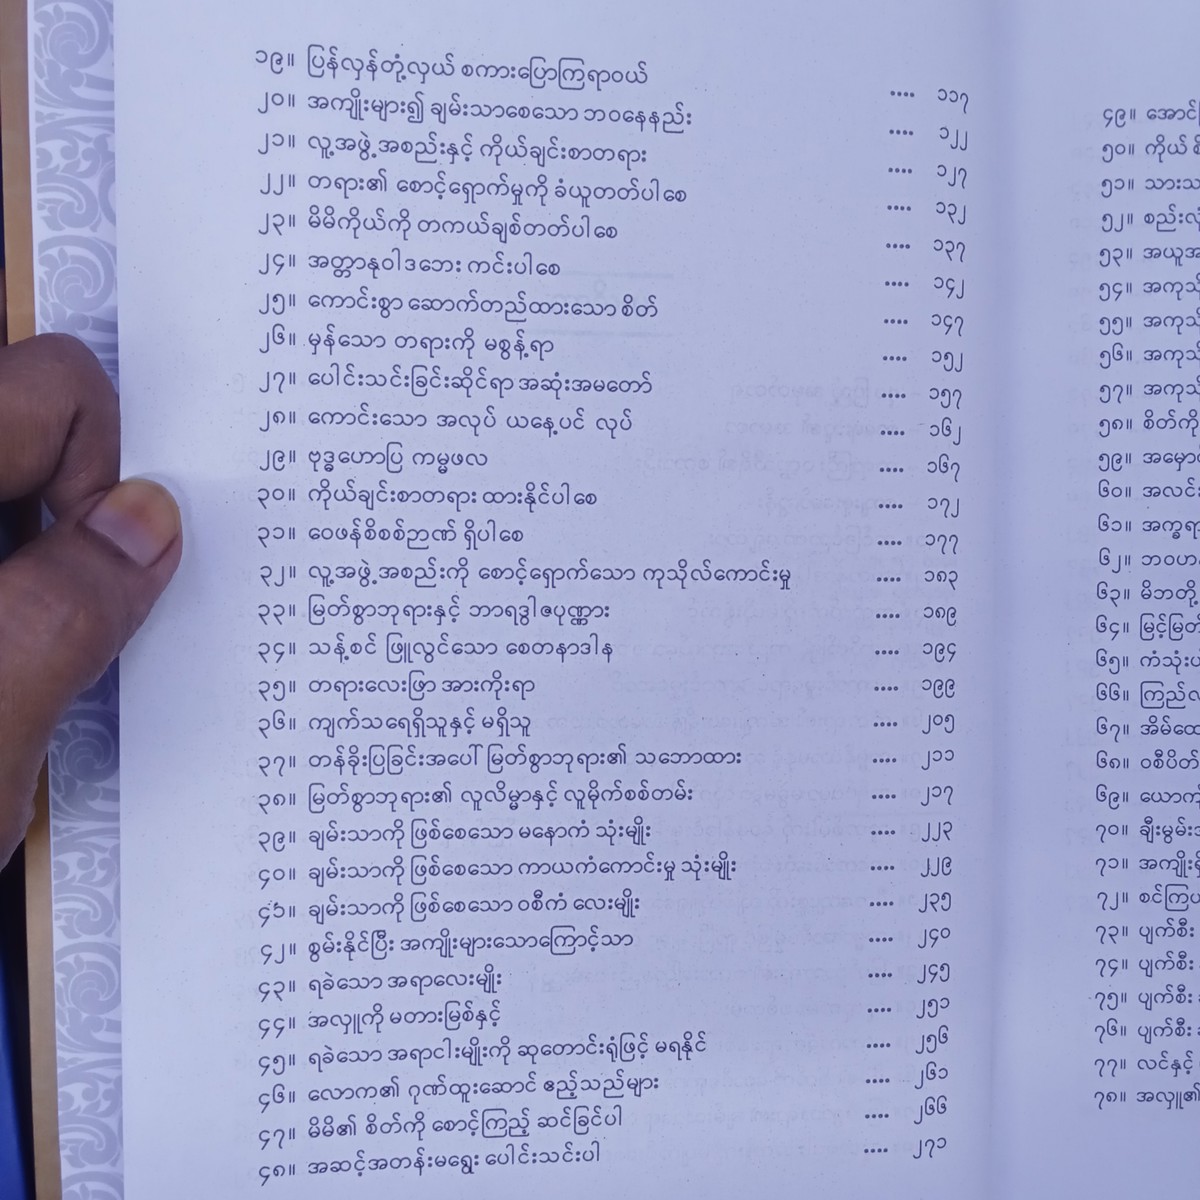 ၁၉။ ပြန်လှန်တုံ့လှယ် စကားပြောကြရာဝယ် .... ၁၁၇
၂၀။ အကျိုးများ၍ ချမ်းသာစေသော ဘဝနေနည်း .... ၁၂၂
၂၁။ လူ့အဖွဲ့အစည်းနှင့် ကိုယ်ချင်းစာတရား .... ၁၂၇
၂၂။ တရား၏ စောင့်ရှောက်မှုကို ခံယူတတ်ပါစေ .... ၁၃၂
၂၃။ မိမိကိုယ်ကို တကယ်ချစ်တတ်ပါစေ .... ၁၃၇
၂၄။ အတ္တာနုဝါဒဘေး ကင်းပါစေ .... ၁၄၂
၂၅။ ကောင်းစွာ ဆောက်တည်ထားသော စိတ် .... ၁၄၇
၂၆။ မှန်သော တရားကို မစွန့်ရာ .... ၁၅၂
၂၇။ ပေါင်းသင်းခြင်းဆိုင်ရာ အဆုံးအမတော် .... ၁၅၇
၂၈။ ကောင်းသော အလုပ် ယနေ့ပင် လုပ် .... ၁၆၂
၂၉။ ဗုဒ္ဓဟောပြ ကမ္မဖလ .... ၁၆၇
၃၀။ ကိုယ်ချင်းစာတရား ထားနိုင်ပါစေ .... ၁၇၂
၃၁။ ဝေဖန်စိစစ်ဉာဏ် ရှိပါစေ .... ၁၇၇
၃၂။ လူ့အဖွဲ့အစည်းကို စောင့်ရှောက်သော ကုသိုလ်ကောင်းမှု .... ၁၈၃
၃၃။ မြတ်စွာဘုရားနှင့် ဘာရဒွါဇပုဏ္ဏား .... ၁၈၉
၃၄။ သန့်စင် ဖြူလွင်သော စေတနာဒါန .... ၁၉၄
၃၅။ တရားလေးဖြာ အားကိုးရာ .... ၁၉၉
၃၆။ ကျက်သရေရှိသူနှင့် မရှိသူ .... ၂၀၅
၃၇။ တန်ခိုးပြခြင်းအပေါ် မြတ်စွာဘုရား၏ သဘောထား .... ၂၁၁
၃၈။ မြတ်စွာဘုရား၏ လူလိမ္မာနှင့် လူမိုက်စစ်တမ်း .... ၂၁၇
၃၉။ ချမ်းသာကို ဖြစ်စေသော မနောကံ သုံးမျိုး .... ၂၂၃
၄၀။ ချမ်းသာကို ဖြစ်စေသော ကာယကံကောင်းမှု သုံးမျိုး .... ၂၂၉
၄၁။ ချမ်းသာကို ဖြစ်စေသော ဝစီကံ လေးမျိုး .... ၂၃၅
၄၂။ စွမ်းနိုင်ပြီး အကျိုးများသောကြောင့်သာ .... ၂၄၀
၄၃။ ရခဲသော အရာလေးမျိုး .... ၂၄၅
၄၄။ အလှူကို မတားမြစ်နှင့် .... ၂၅၁
၄၅။ ရခဲသော အရာငါးမျိုးကို ဆုတောင်းရုံဖြင့် မရနိုင် .... ၂၅၆
၄၆။ လောက၏ ဂုဏ်ထူးဆောင် ဧည့်သည်များ .... ၂၆၁
၄၇။ မိမိ၏ စိတ်ကို စောင့်ကြည့် ဆင်ခြင်ပါ .... ၂၆၆
၄၈။ အဆင့်အတန်းမရွေး ပေါင်းသင်းပါ .... ၂၇၁
၄၉။
၅၀။ ကိုယ်
၅၁။
၅၂။
၅၃။
၅၄။
၅၅။
၅၆။
၅၇။
၅၈။ စိတ်ကို
၅၉။
၆၀။
၆၁။
၆၂။
၆၃။
၆၄။
၆၅။
၆၆။
၆၇။
၆၈။
၆၉။
၇၀။
၇၁။
၇၂။
၇၃။ ပျက်စီး
၇၄။ ပျက်စီး
၇၅။ ပျက်စီး
၇၆။ ပျက်စီး
၇၇။ လင်နှင့်
၇၈။ အလှူ၏